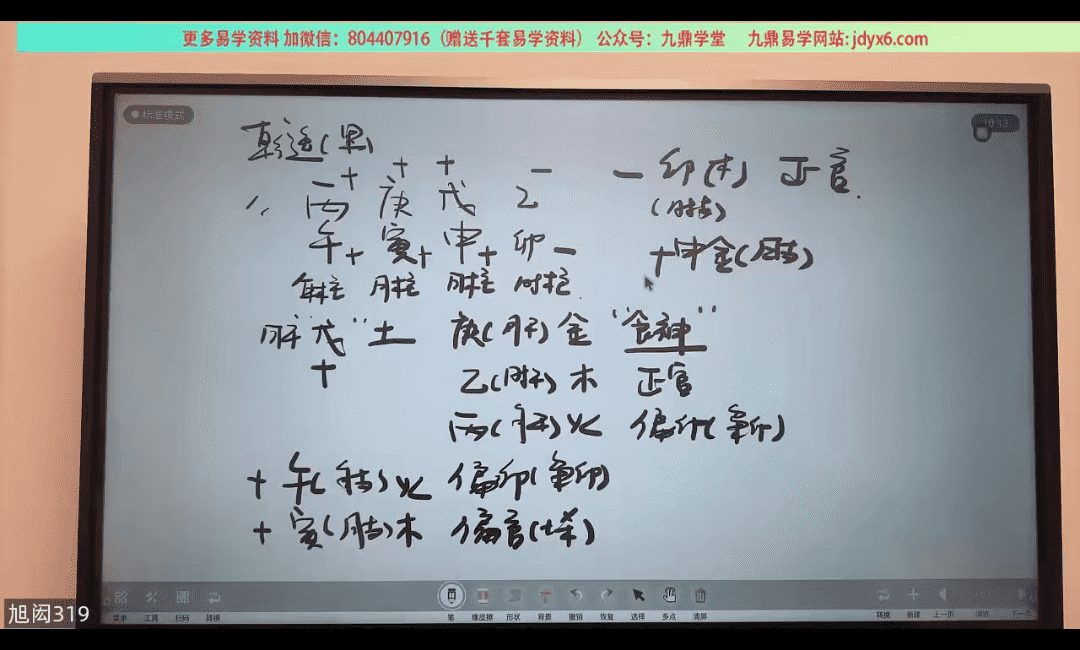 更多易学资料 加微信：804407916（赠送千套易学资料） 公众号：九鼎学堂 九鼎易学网站：jdyx6.com
标准模式
乾造(男)
+ + + -
1、丙 庚 戊 乙
午+ 寅+ 申+ 卯-
年柱 月柱 日柱 时柱
- 卯(木) 正官.
(时支)
+申金(日支)
日干"戊"土
+
庚(月干)金 "食神"
乙(时干)木 正官
丙(年干)火 偏印(枭印)
+ 午(年支)火 偏印(枭印)
+ 寅(月支)木 偏官(七杀)
菜单 工具 扫码 转换 笔 橡皮擦 形状 背景 撤销 恢复 选择 多点 清屏 转换 新建 上一页 下一页
旭闳319